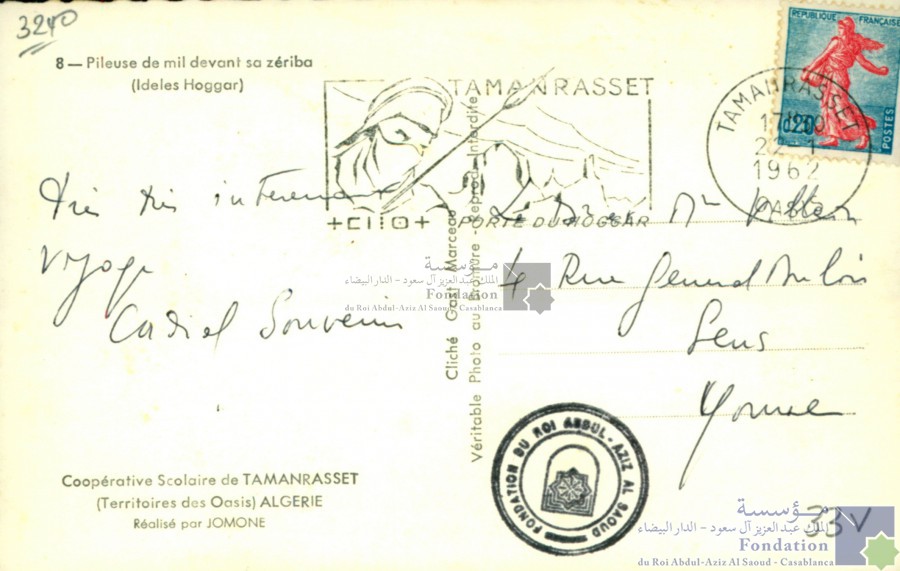 3240
8 — Pileuse de mil devant sa zériba
(Ideles Hoggar)
TAMANRASSET
PORTE DU HOGGAR
TAMANRASSET
22-1
1962
OASIS
REPUBLIQUE FRANÇAISE
0,20
POSTES
Très très intéressant
voyage
Cordial Souvenir
4 Rue General
Sens
Yonne
Cliché Gast Marceau
Véritable Photo au Bromure - Reprod. Interdite
مؤسسة
الملك عبد العزيز آل سعود – الدار البيضاء
Fondation
du Roi Abdul-Aziz Al Saoud - Casablanca
FONDATION DU ROI ABDUL-AZIZ AL SAOUD
Coopérative Scolaire de TAMANRASSET
(Territoires des Oasis) ALGERIE
Réalisé par JOMONE
33V
مؤسسة
الملك عبد العزيز آل سعود – الدار البيضاء
Fondation
du Roi Abdul-Aziz Al Saoud - Casablanca